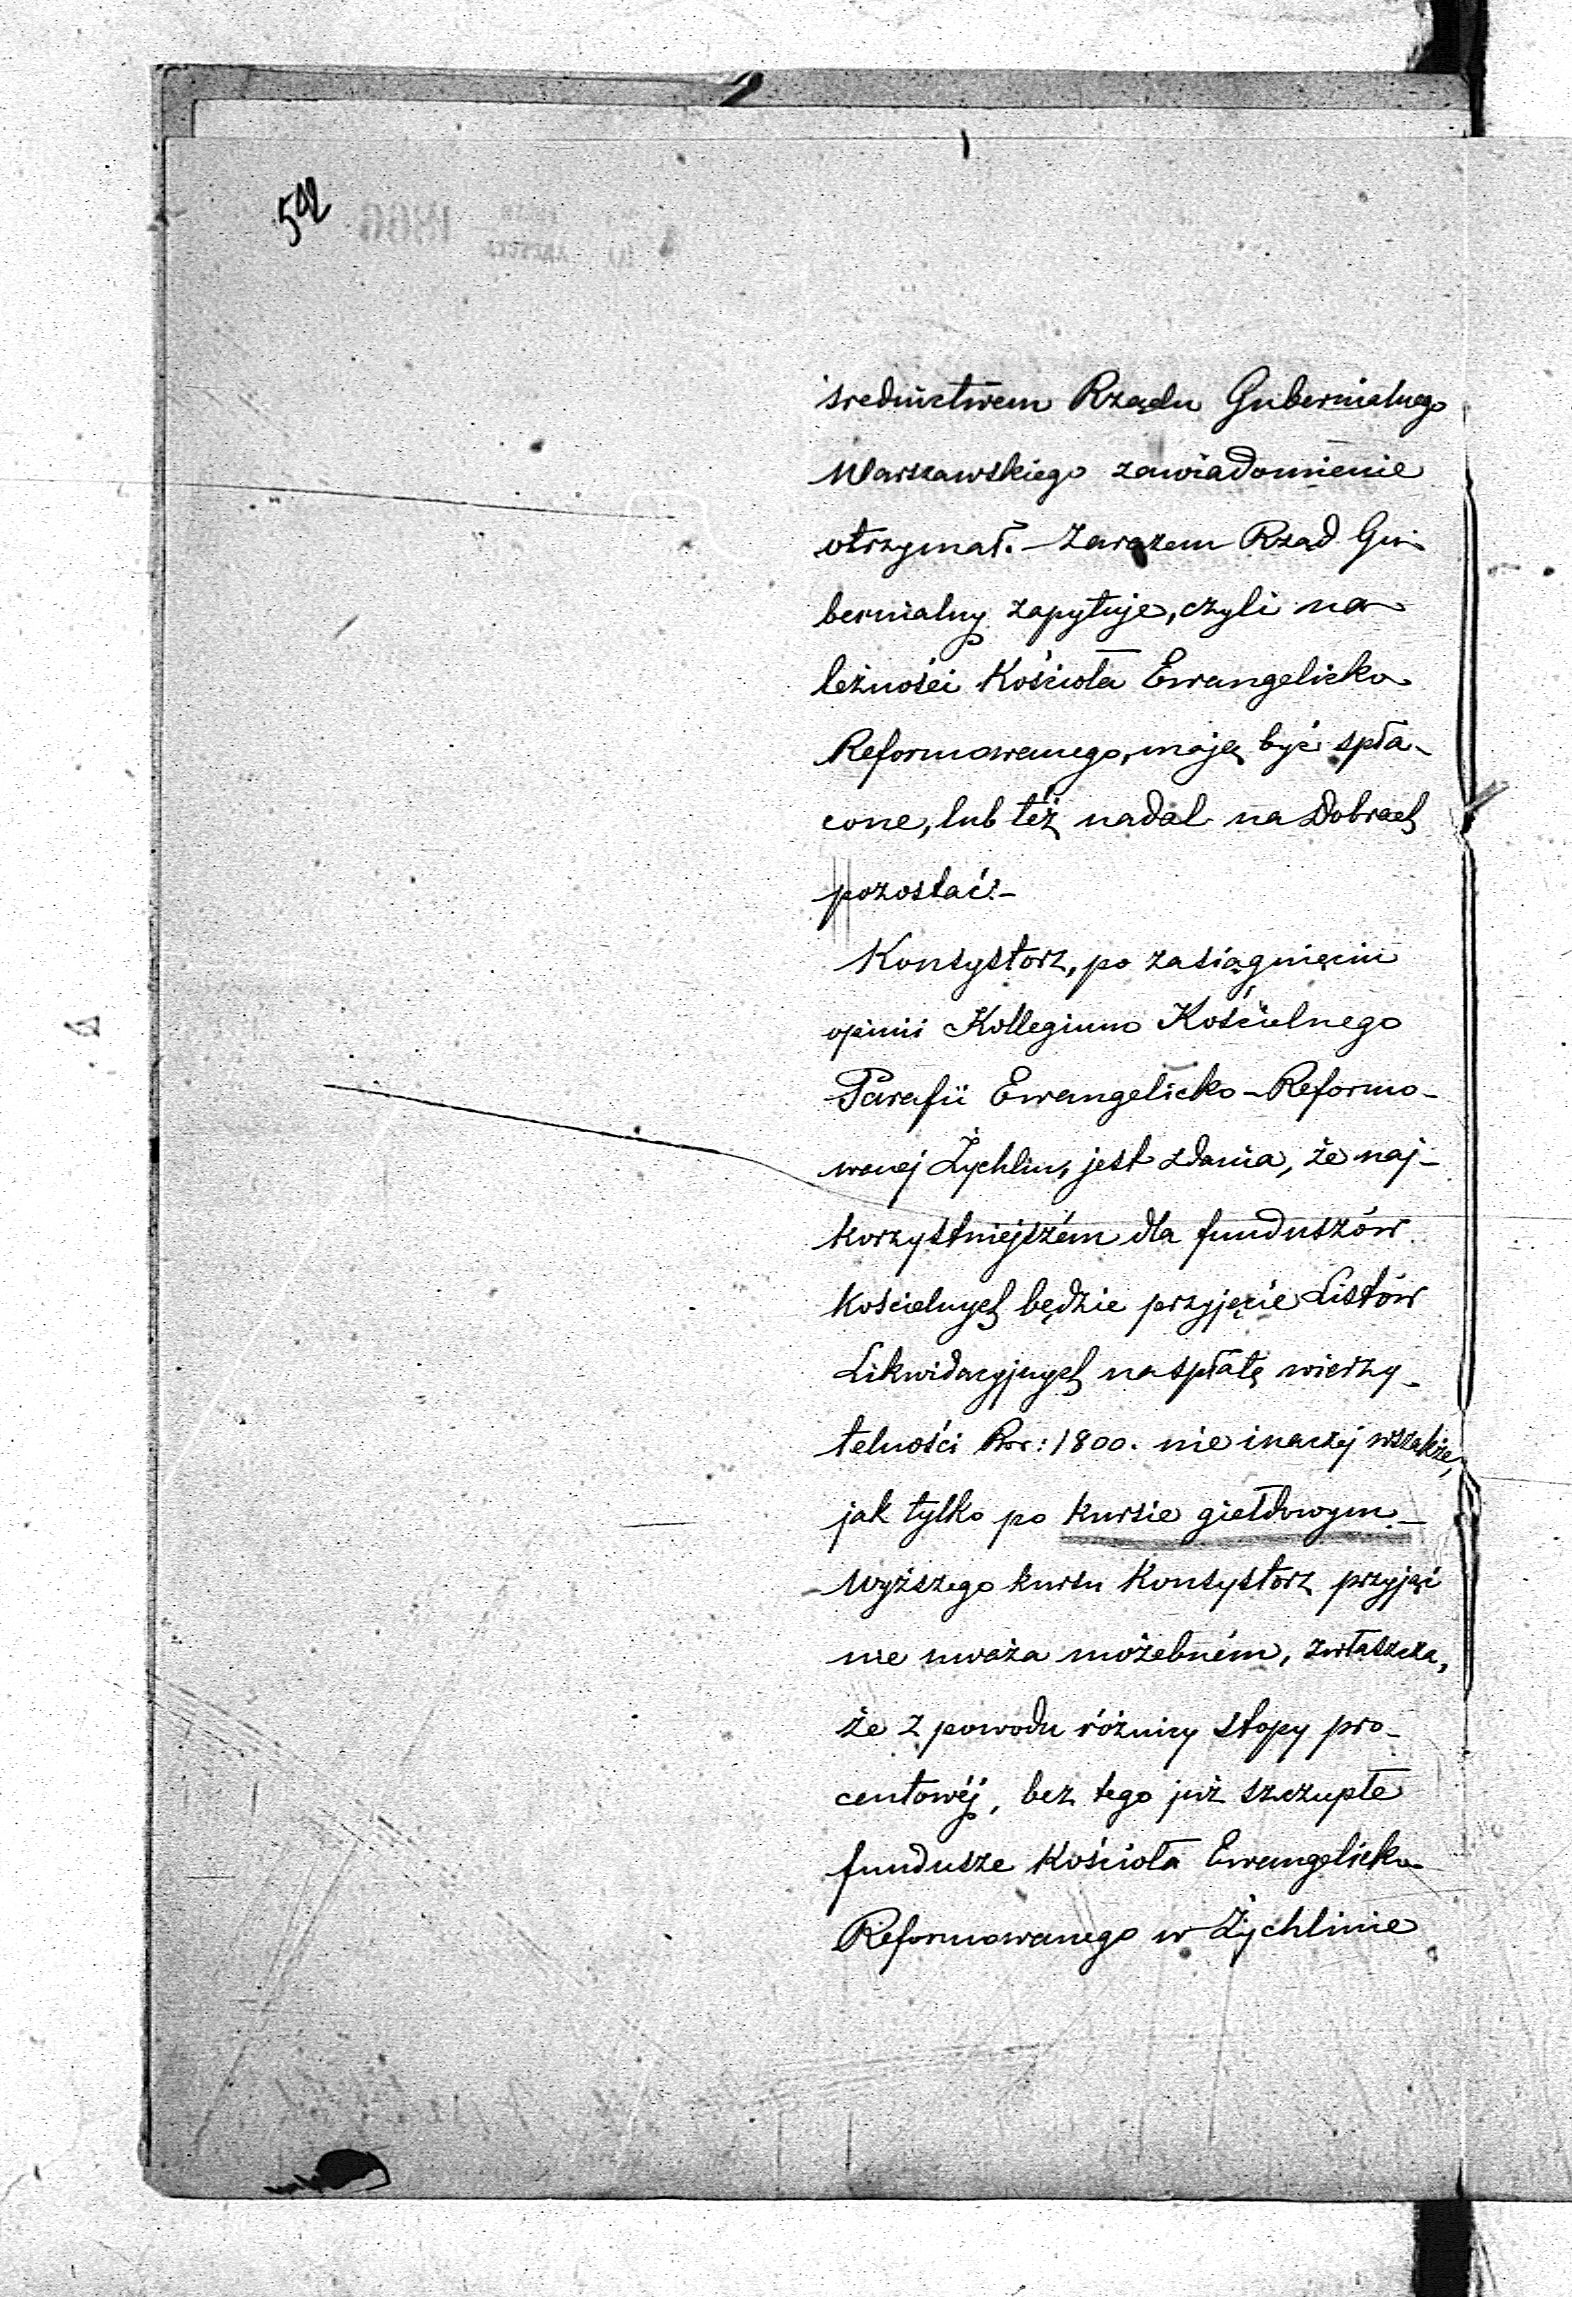 592
średnictwem Rządu Gubernialnego
Warszawskiego zawiadomienie
otrzymał. – Zarazem Rząd Gu-
bernialny zapytuje, czyli na-
leżności Kościoła Ewangelicko
Reformowanego, mają być spła-
cone, lub też nadal na Dobrach
pozostać? –
Konsystorz, po zasiągnięciu
opinii Kollegium Kościelnego
Parafii Ewangelicko-Reformo-
wanej Żychlin, jest zdania, że naj-
korzystniejszém dla funduszów
Kościelnych będzie przyjęcie Listów
Likwidacyjnych na spłatę wierzy-
telności Rsr: 1800. nie inaczej wszakże,
jak tylko po kursie giełdowym. –
Wyższego kursu Konsystorz przyjąć
nie uważa możebném, zwłaszcza,
że z powodu różnicy stopy pro-
centowéj, bez tego już szczupłe
fundusze Kościoła Ewangelicko
Reformowanego w Żychlinie